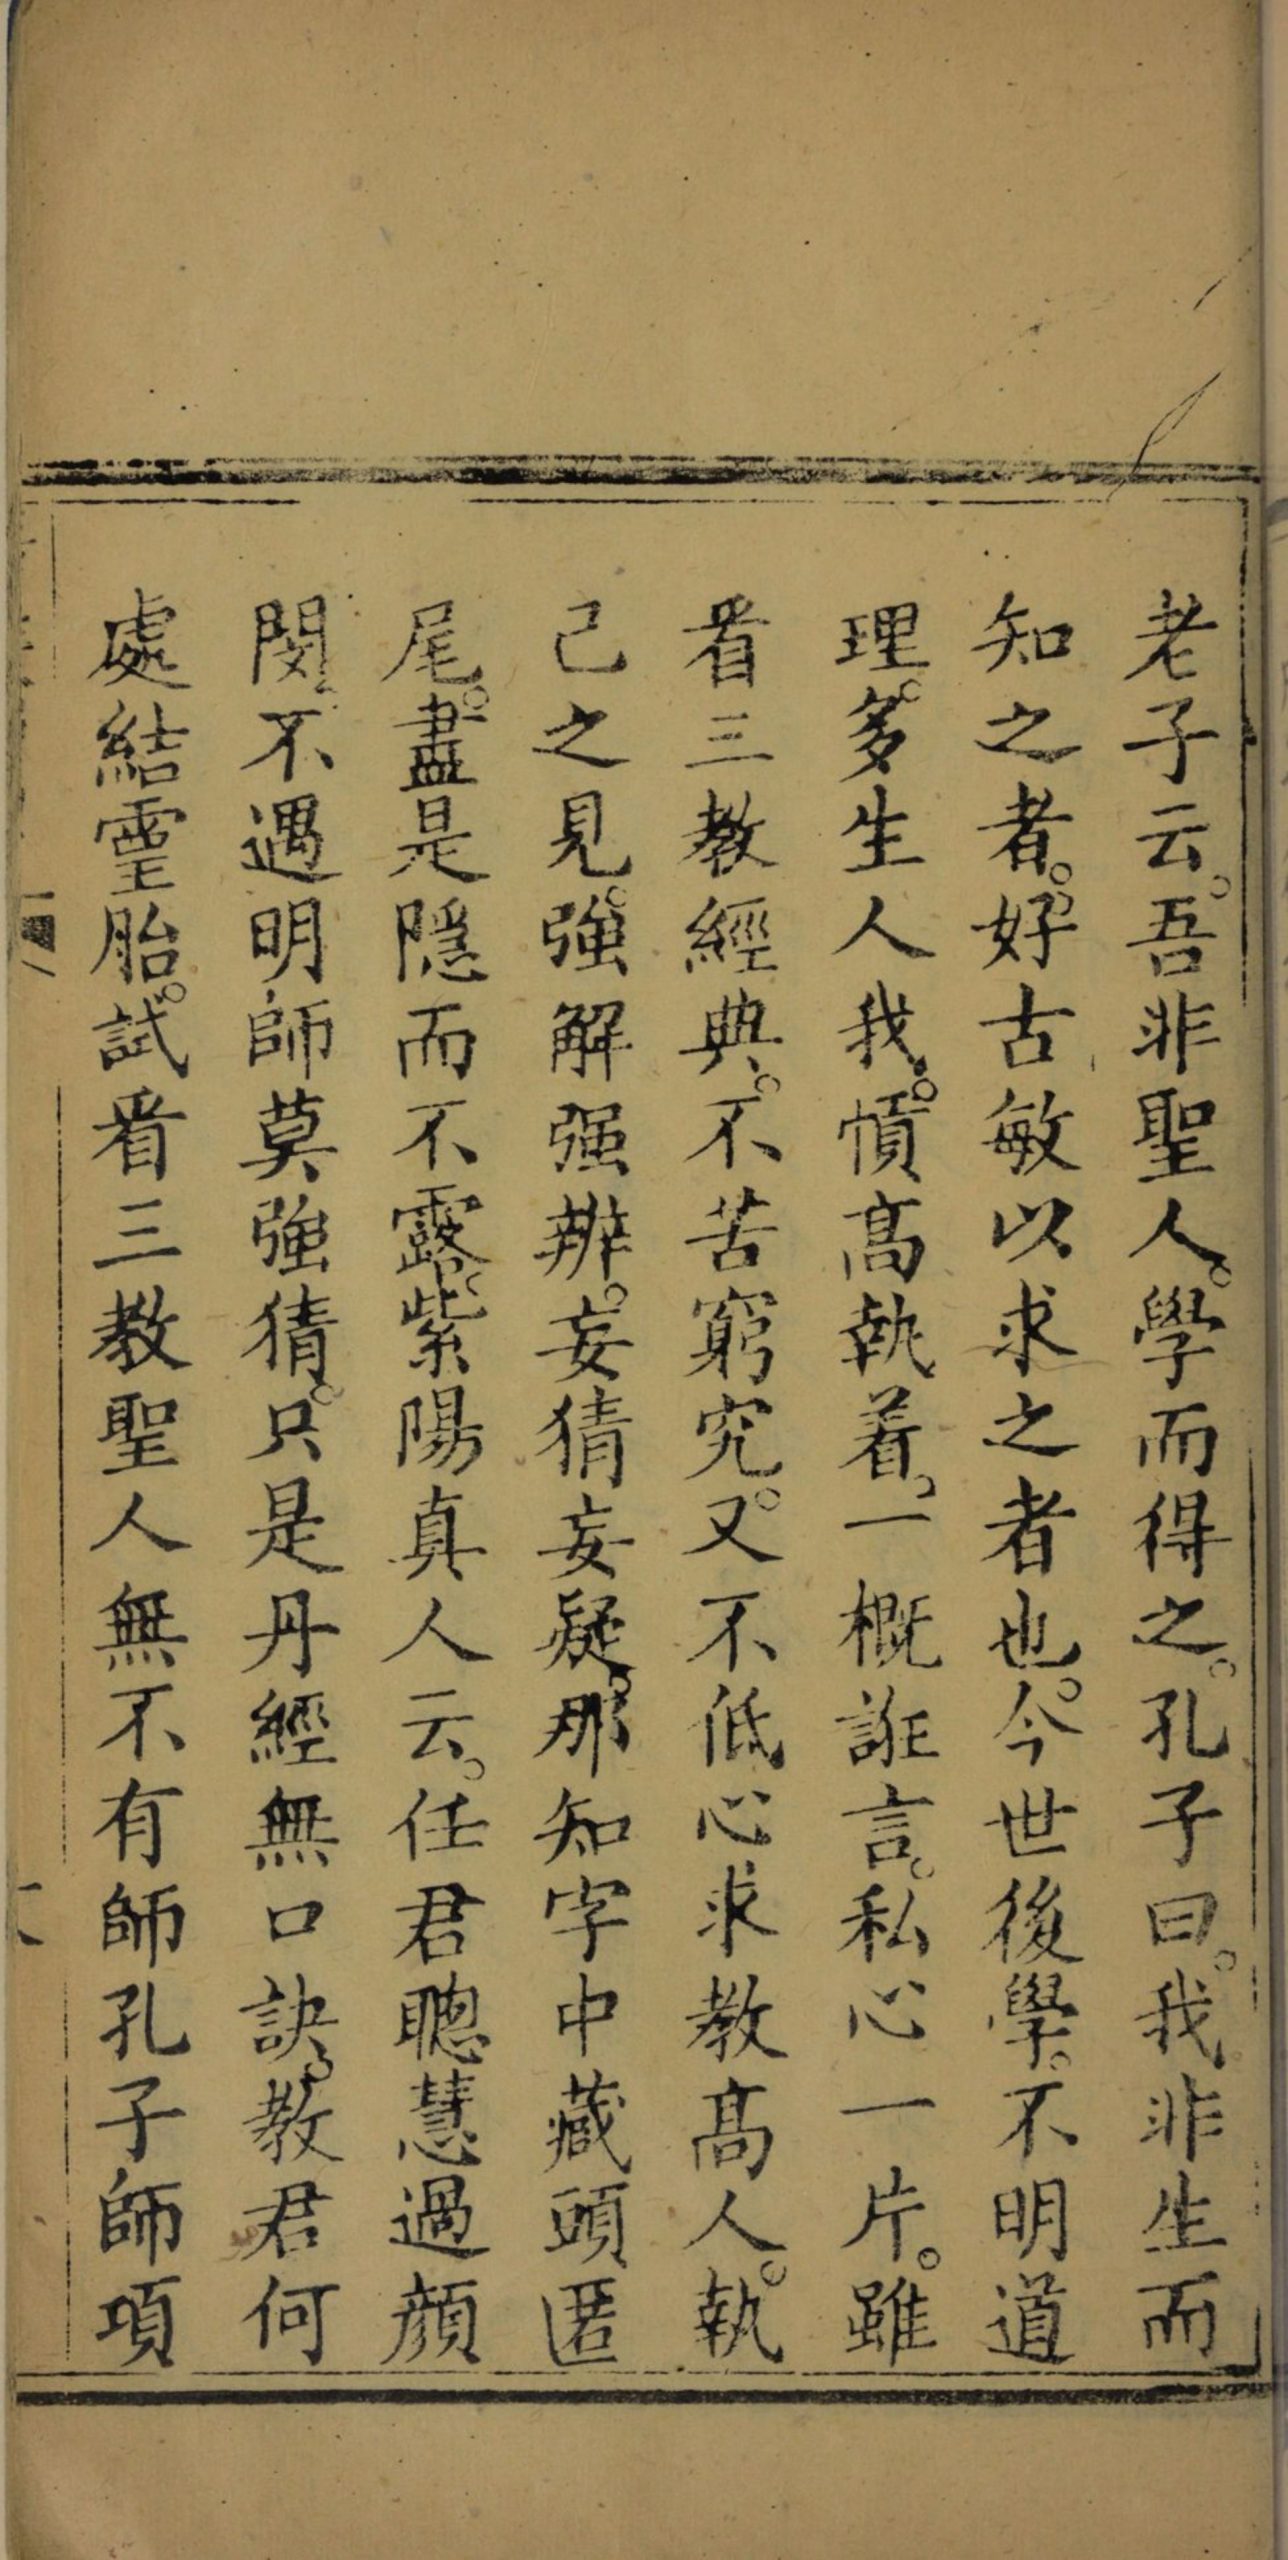 老子云。吾非聖人。學而得之。孔子曰。我非生而
知之者。好古敏以求之者也。今世後學。不明道
理。多生人我。慎高執着。一概誑言。私心一片。雖
看三教經典。不苦窮究。又不低心求教高人。執
己之見。強解强辨。妄猜妄疑。那知字中藏頭匿
尾。盡是隱而不露。紫陽真人云。任君聰慧過顔
閔。不遇明師莫強猜。只是丹經無口訣。教君何
處結靈胎。試看三教聖人無不有師孔子師項